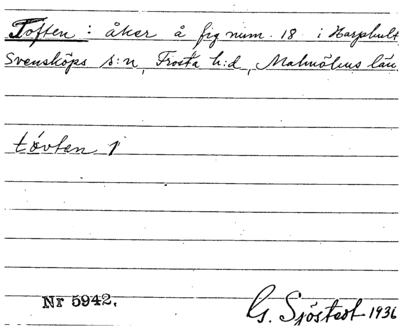 Toften: åker å fig num. 18 i Harphult
Svensköps s:n, Frosta h:d, Malmöhus län.
tóvten 1
Nr 5942.
G. Sjöstedt 1936